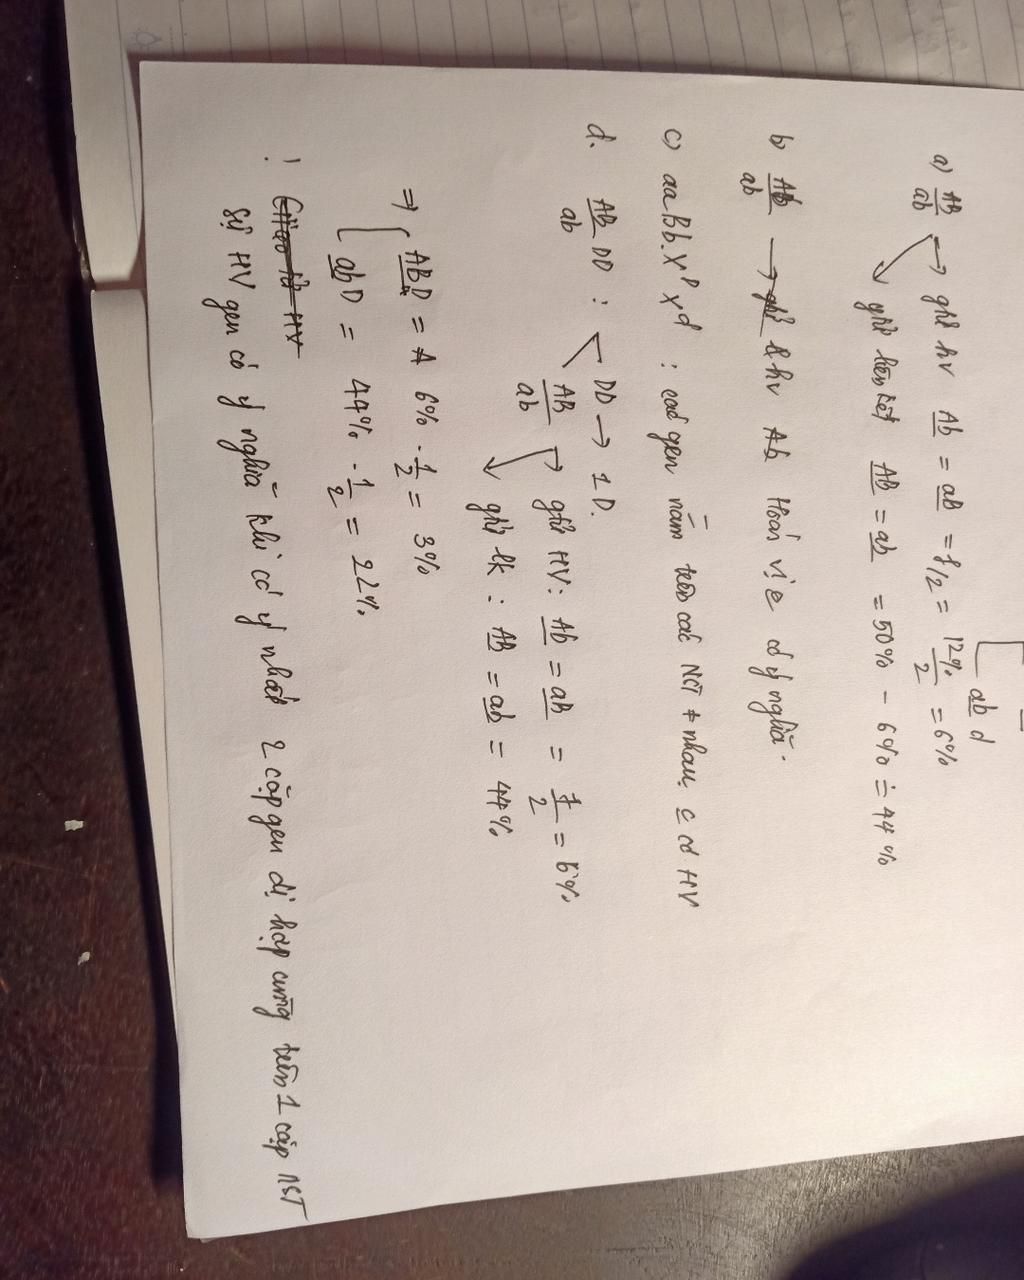 ab d
a) AB/ab → gtử hv Ab = aB = f/2 = 12%/2 = 6%
→ gtử liên kết AB = ab = 50% - 6% = 44%
b) Ab/ab → k hv Ab Hoán vị c có ý nghĩa.
c) aaBb.X^D X^d : các gen nằm trên các NST ≠ nhau, c có HV
d. AB/ab DD : DD → 1 D.
AB/ab → gtử HV: Ab = aB = f/2 = 6%
→ gtử lk : AB = ab = 44%
⇒ ABD = 6% . 1/2 = 3%
abD = 44% . 1/2 = 22%
!
Sự HV gen có ý nghĩa khi có ý nhất 2 cặp gen dị hợp cùng trên 1 cặp NST